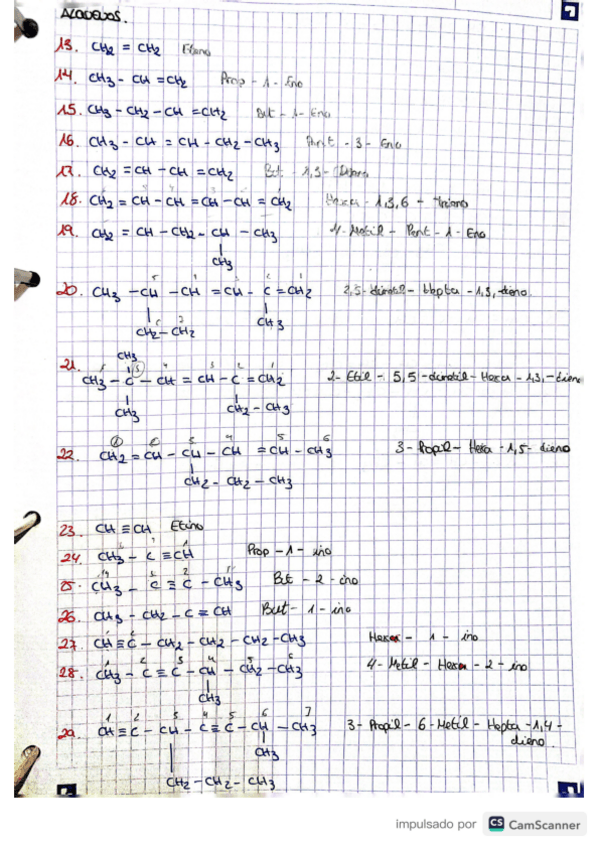 13. CH2 = CH2 Eteno
14. CH3 - CH = CH2 Prop - 1 - Eno
15. CH3 - CH2 - CH = CH2 But - 1 - Eno
16. CH3 - CH = CH - CH2 - CH3 Pent - 3 - Eno
17. CH2 = CH - CH = CH2 But - 1,3 - Dieno
18. CH2 = CH - CH = CH - CH = CH2 Hexa - 1,3,6 - trieno
19. CH2 = CH - CH2 - CH - CH3 4 - Metil - Pent - 1 - Eno
CH3
20. CH3 - CH - CH = CH - C = CH2 2,5 - dimetil - Hepta - 1,3, - dieno.
CH2 - CH2 CH3
CH3
21. CH3 - C - CH = CH - C = CH2 2 - Etil - 5,5 - dimetil - Hexa - 1,3, - dieno
CH3 CH2 - CH3
22. CH2 = CH - CH - CH = CH - CH3 3 - Propil - Hexa - 1,5 - dieno
CH2 - CH2 - CH3
23. CH ≡ CH Etino
24. CH3 - C ≡ CH Prop - 1 - ino
25. CH3 - C ≡ C - CH3 But - 2 - ino
26. CH3 - CH2 - C ≡ CH But - 1 - ino
27. CH ≡ C - CH2 - CH2 - CH2 - CH3 Hexa - 1 - ino
28. CH3 - C ≡ C - CH - CH2 - CH3 4 - Metil - Hexa - 2 - ino
CH3
29. CH ≡ C - CH - C ≡ C - CH - CH3 3 - Propil - 6 - Metil - Hepta - 1,4 -
dieno.
CH3
CH2 - CH2 - CH3
impulsado por CS CamScanner